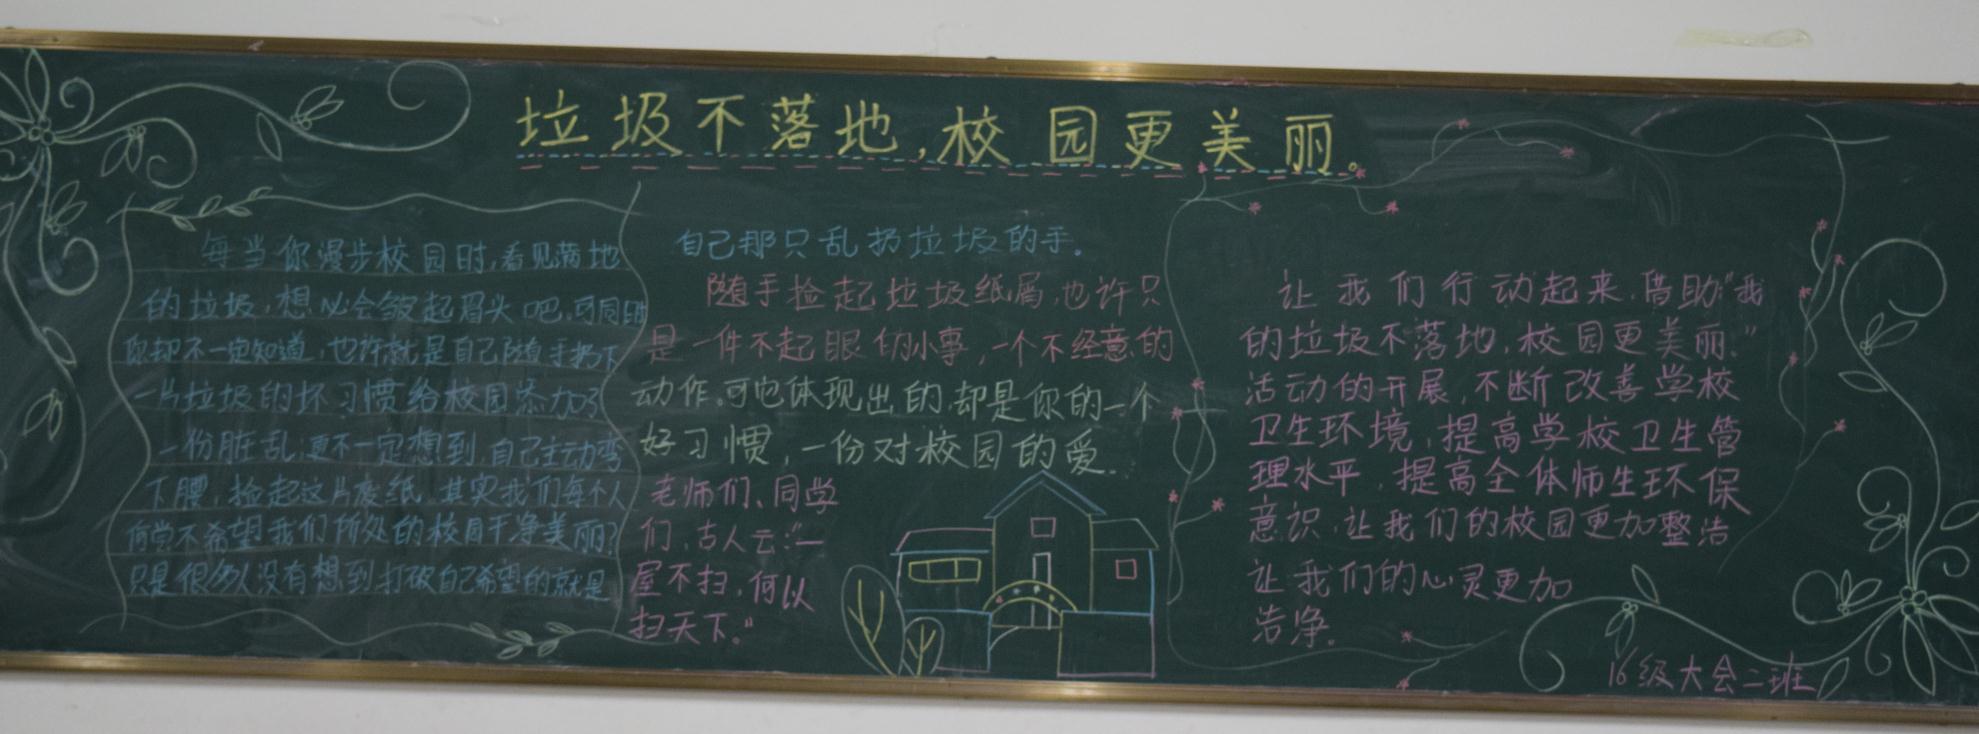 垃圾不落地,校园更美丽。
每当你漫步校园时,看见满地
的垃圾,想必会皱起眉头吧,可同时
你却不一定知道,也许就是自己随手扔下
一片垃圾的坏习惯给校园添加了
一份脏乱;更不一定想到,自己主动弯
下腰,捡起这片废纸,其实我们每个人
何尝不希望我们所处的校园干净美丽?
只是很多人没有想到打破自己希望的就是
自己那只乱扔垃圾的手。
随手捡起垃圾纸屑,也许只
是一件不起眼的小事,一个不经意的
动作,可它体现出的,却是你的一个
好习惯,一份对校园的爱.
老师们、同学
们,古人云:“一
屋不扫,何以
扫天下。”
让我们行动起来,借助“我
的垃圾不落地,校园更美丽.”
活动的开展,不断改善学校
卫生环境,提高学校卫生管
理水平,提高全体师生环保
意识,让我们的校园更加整洁
让我们的心灵更加
洁净。
16级大会二班